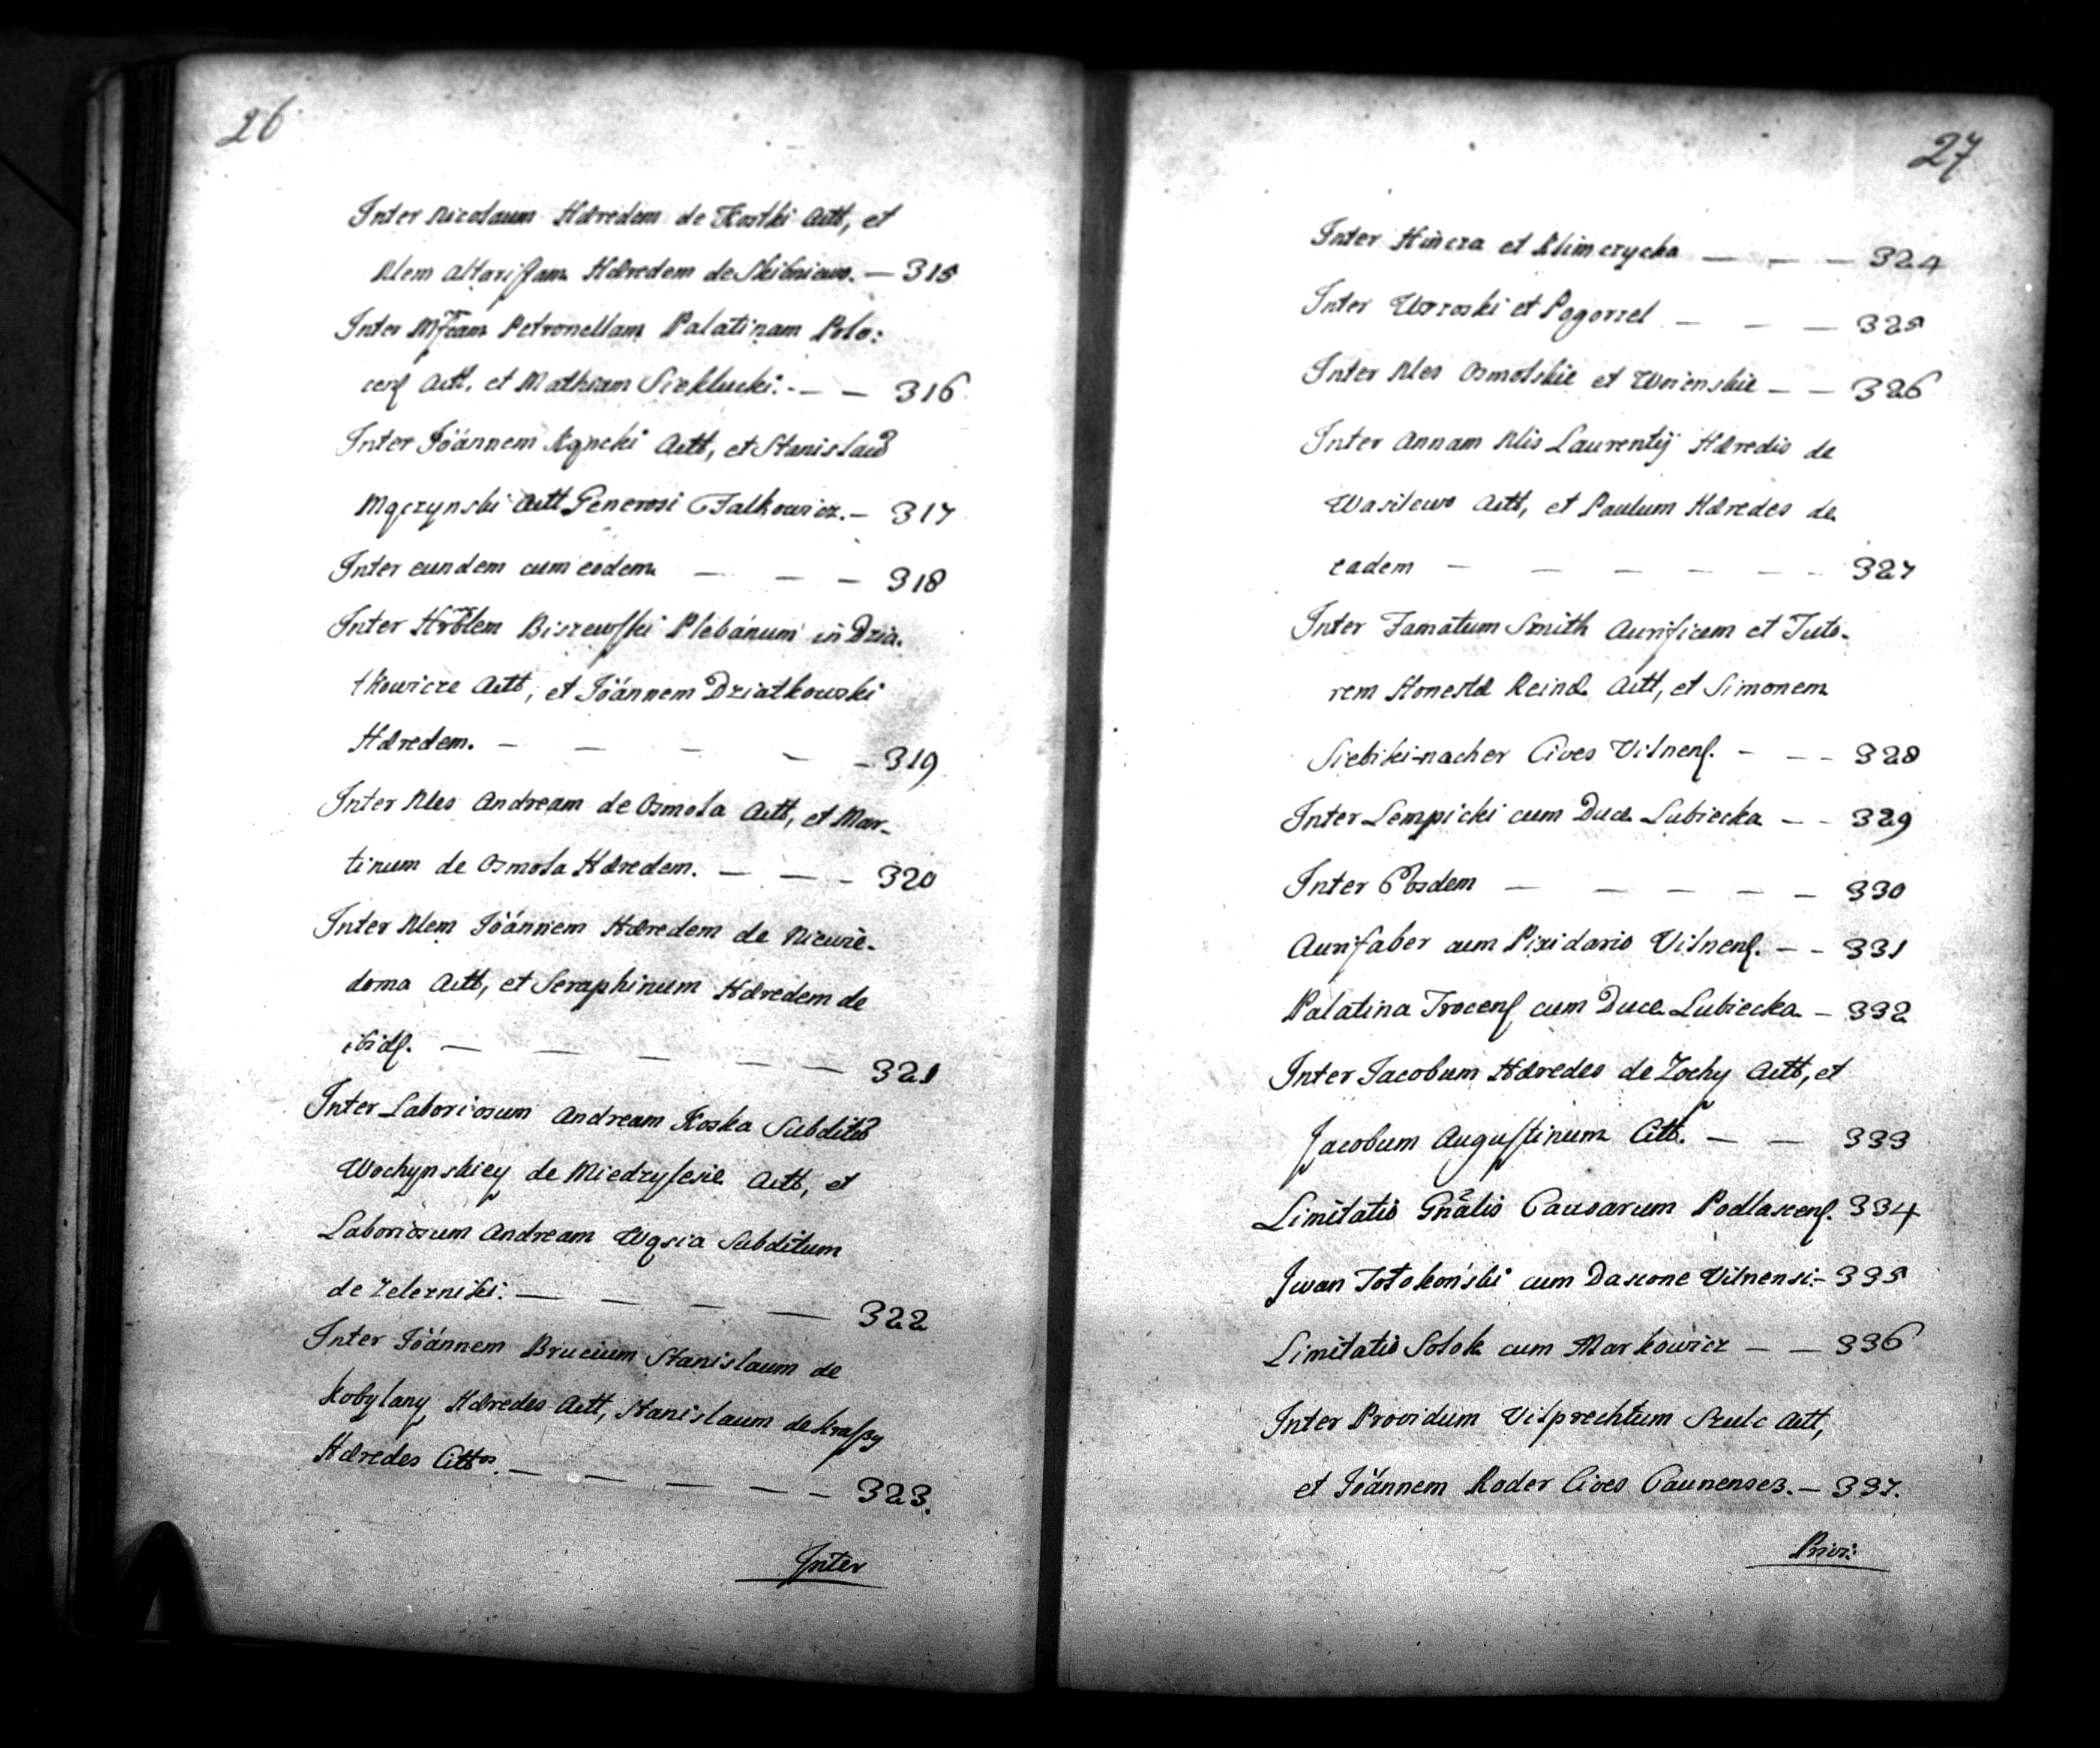 26
Inter Nicolaum Hæredem de Kostki Actt, et
Nlem Altaristam Hæredem de Skibniewo. — 315
Inter Mfcam Petronellam Palatinam Polo:
cens Actt, et Mathiam Sieklucki. - — — 316
Inter Joánnem Kącki Actt, et Stanislaū
Mączynski Actt Generosi Falkowicz. — 317
Inter eundem cum eodem — — — 318
Inter Hrōlem Biszewski Plebánum in Dzia.
tkowicze Actt, et Joánnem Dziatkowski
Hæredem. — — — — — 319
Inter Nles Andream de Osmola Actt, et Mar-
tinum de Osmola Hæredem. — — — 320
Inter Nlem Joánnem Hæredem de Niewie-
doma Actt, et Seraphinum Hæredem de
ibid. — — — — — — 321
Inter Laboriosum Andream Koska Subditū
Wochynskiey de Miedzylesie Actt, et
Laboriosum Andream Wąsia Subditum
de Zelezniki. — — — — 322
Inter Joánnem Brucium Stanislaum de
Kobylany Hæredes Actt, Stanislaum de Krassy
Hæredes Cittos. — — — — — 323.
Inter
27
Inter Hincza et Klimczycka — — — 324
Inter Uzroski et Pogorzel — — — 325
Inter Nles Osmolskie et Woienskie — — 326
Inter Annam Nlis Laurentij Hæredis de
Wasilewo Actt, et Paulum Hæredes de
eadem — — — — — — 327
Inter Famatum Smith Aurificem et Tuto-
rem Honestæ Reinæ Actt, et Simonem
Siebikinacher Cives Vilnens. - — — 328
Inter Lempicki cum Duce Lubiecka — — 329
Inter Eosdem — — — — — 330
Aurifaber cum Pixidario Vilnens. — — 331
Palatina Trocens cum Duce Lubiecka — 332
Inter Jacobum Hæredes de Zochy Actt, et
Jacobum Augustinum Citt. — — 333
Limitatio Gnālis Causarum Podlascens. 334
Jwan Totokoński cum Dascone Vilnensi. - 335
Limitatio Solok cum Markowicz — — 336
Inter Providum Vilprechtum Szulc Actt,
et Joánnem Roder Cives Caunenses. — 337.
Privi: